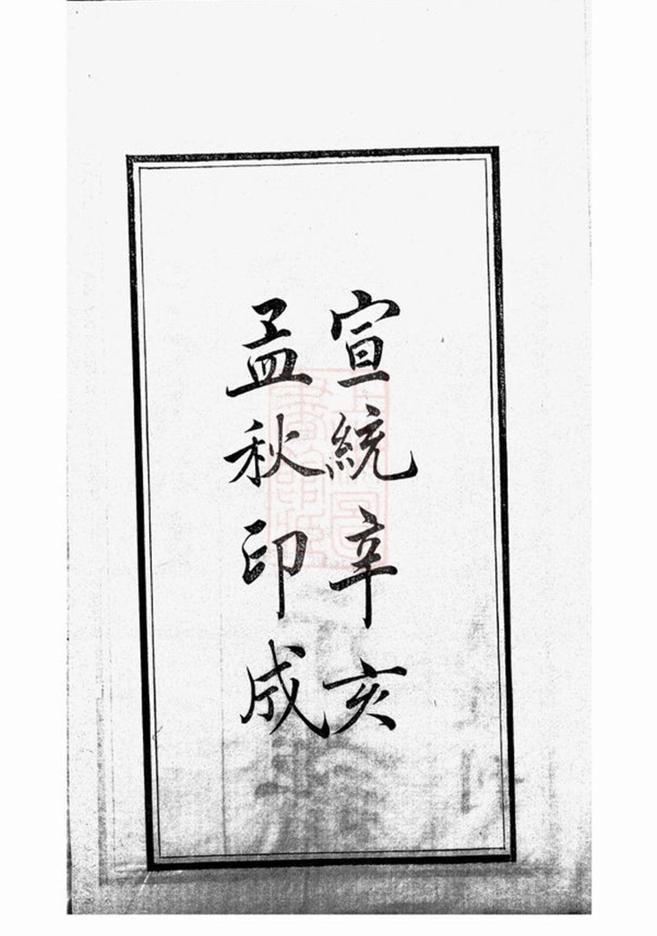 宣統辛亥
孟秋印成